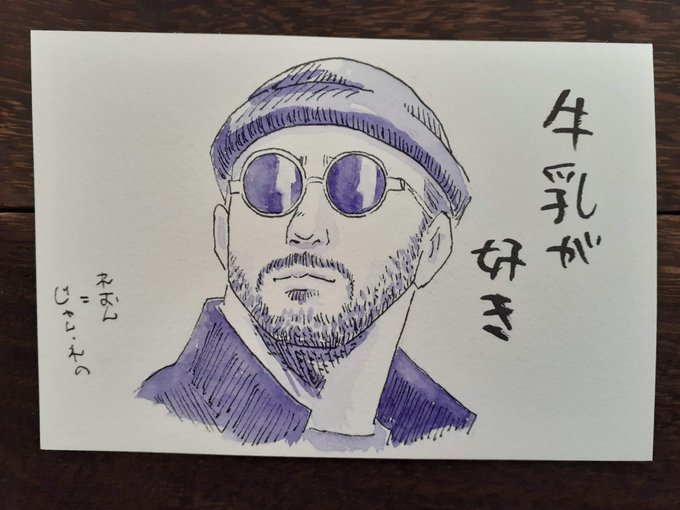 牛乳が
好き
れおん
じゃん・れの